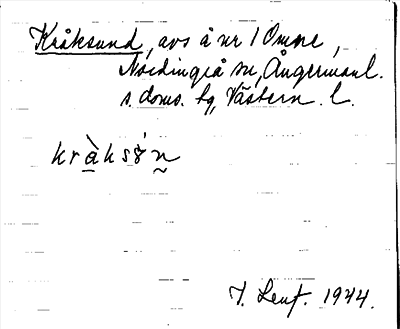 Kråksund, avs å nr 1 Omne,
Nordingrå sn, Ångermanl.
s. doms. lg, Västern. l.
kràksó̤n
J. Lenf. 1944.